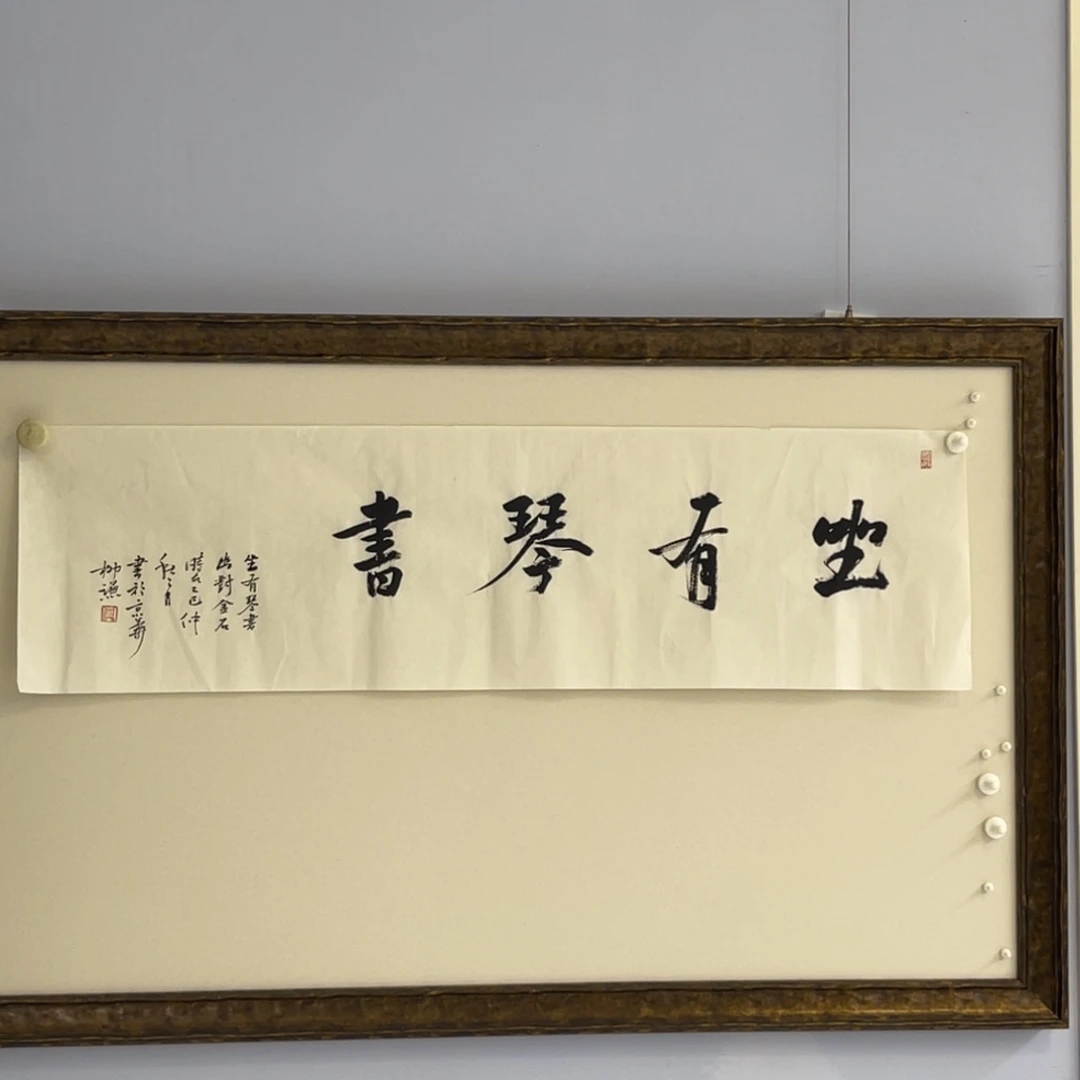 坐有琴書
坐有琴書
出對金石
時在乙巳仲
秋之月
書於京華
柳謙